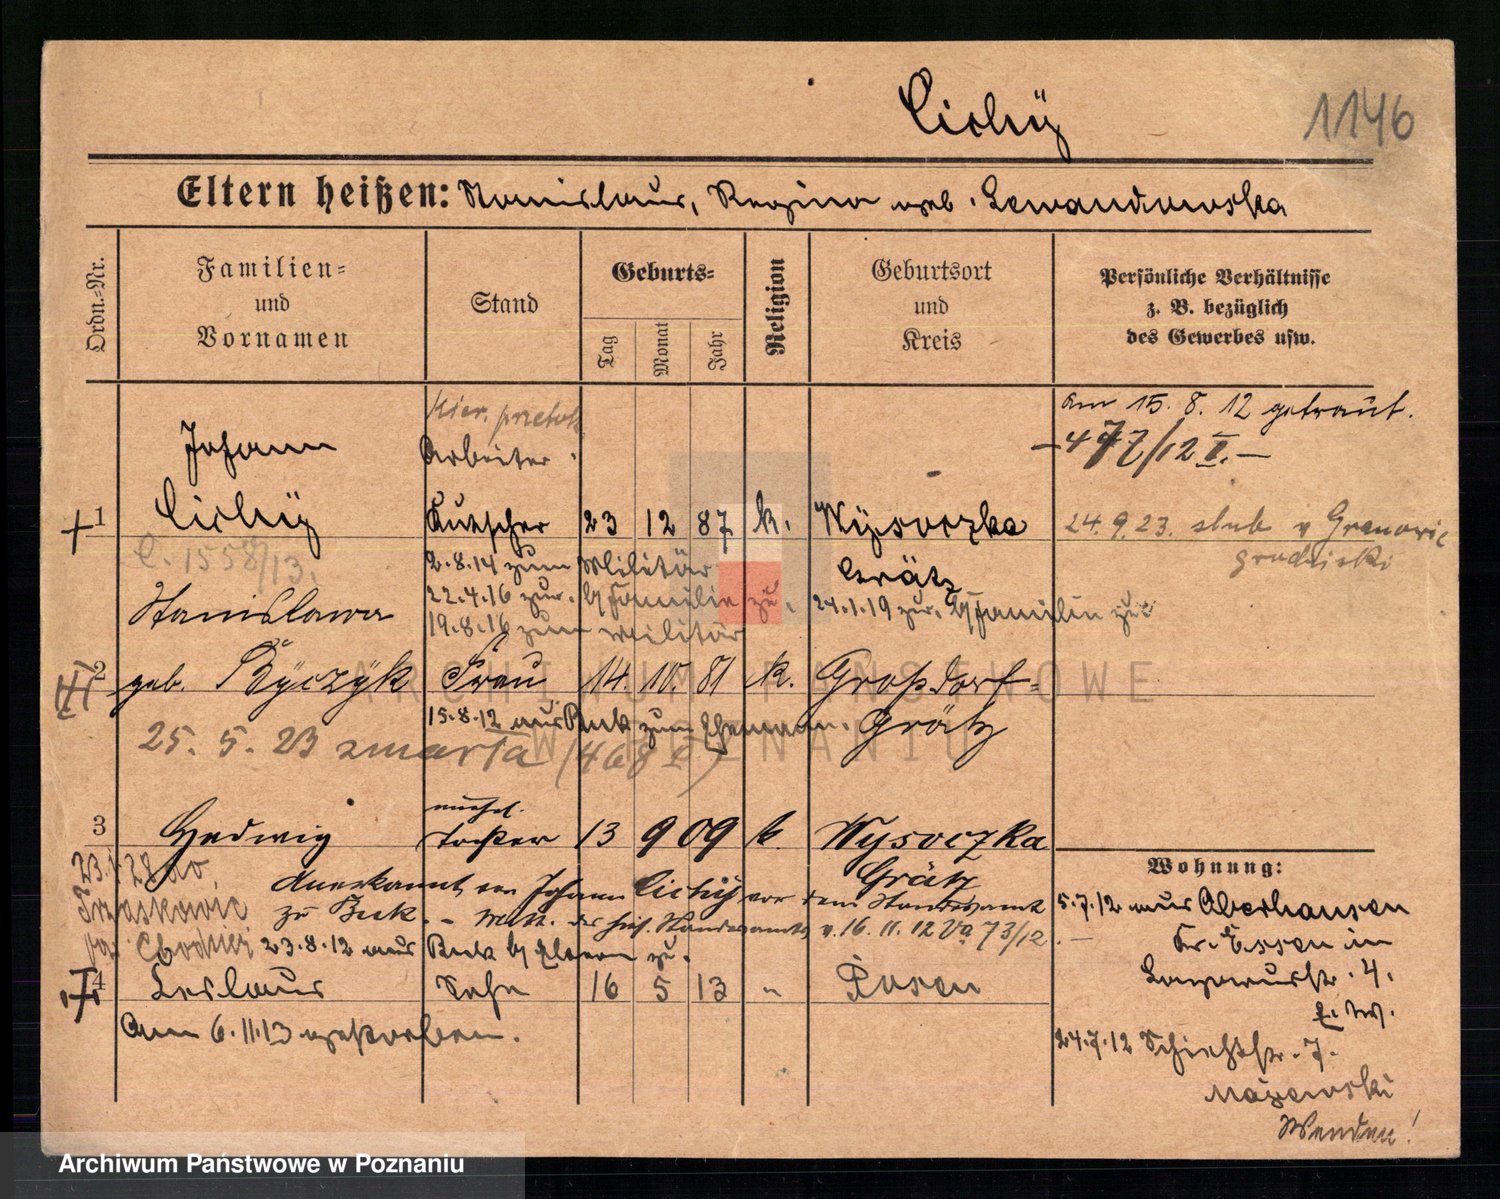 Cichÿ
1146
Eltern heißen: Stanislaus, Regina geb. Lewandowska
Ordn.-Nr.
Familien-
und
Vornamen
Stand
Geburts-
Tag
Monat
Jahr
Religion
Geburtsort
und
Kreis
Persönliche Verhältnisse
z. B. bezüglich
des Gewerbes usw.
Am 15. 8. 12 getraut.
– 477/12 II. –
Johann
Arbeiter
1 Cichÿ Kutscher 23 12 87 k. Wysoczka
Grätz
24.9.23. ślub v Granowie
grodziski
C. 1558/13.
2.8.14 zum Militär
22.4.16 zur. b/Familie zu.
19.8.16 zum Militär
24.1.19 zur. b/Familie zu
Stanislawa
2 geb. Byczyk Frau 14. 10. 81 k. Großdorf-
Grätz
15.8.12 aus Buk zum Ehemann.
25. 5. 23 zmarła (468 )
unehel.
3 Hedwig Tochter 13 9 09 k. Wysoczka
Grätz
Anerkannt von Johann Cichÿ vor dem Standesamt
zu Buk. – Mitt. des hies. Standesamts v. 16. 11. 12 Va 73/12. –
23.8.12 aus Buk b/Eltern zu.
4 Leslaus Sohn 16 5 13 " Posen
Am 6.11.13 gestorben.
Wohnung:
5.7.12 aus Oberhausen
Kr. Essen in
4.
E. W.
24.7.12 Schießstr. 7.
Majewski
Wenden!
ARCHIWUM PAŃSTWOWE
W POZNANIU
Archiwum Państwowe w Poznaniu